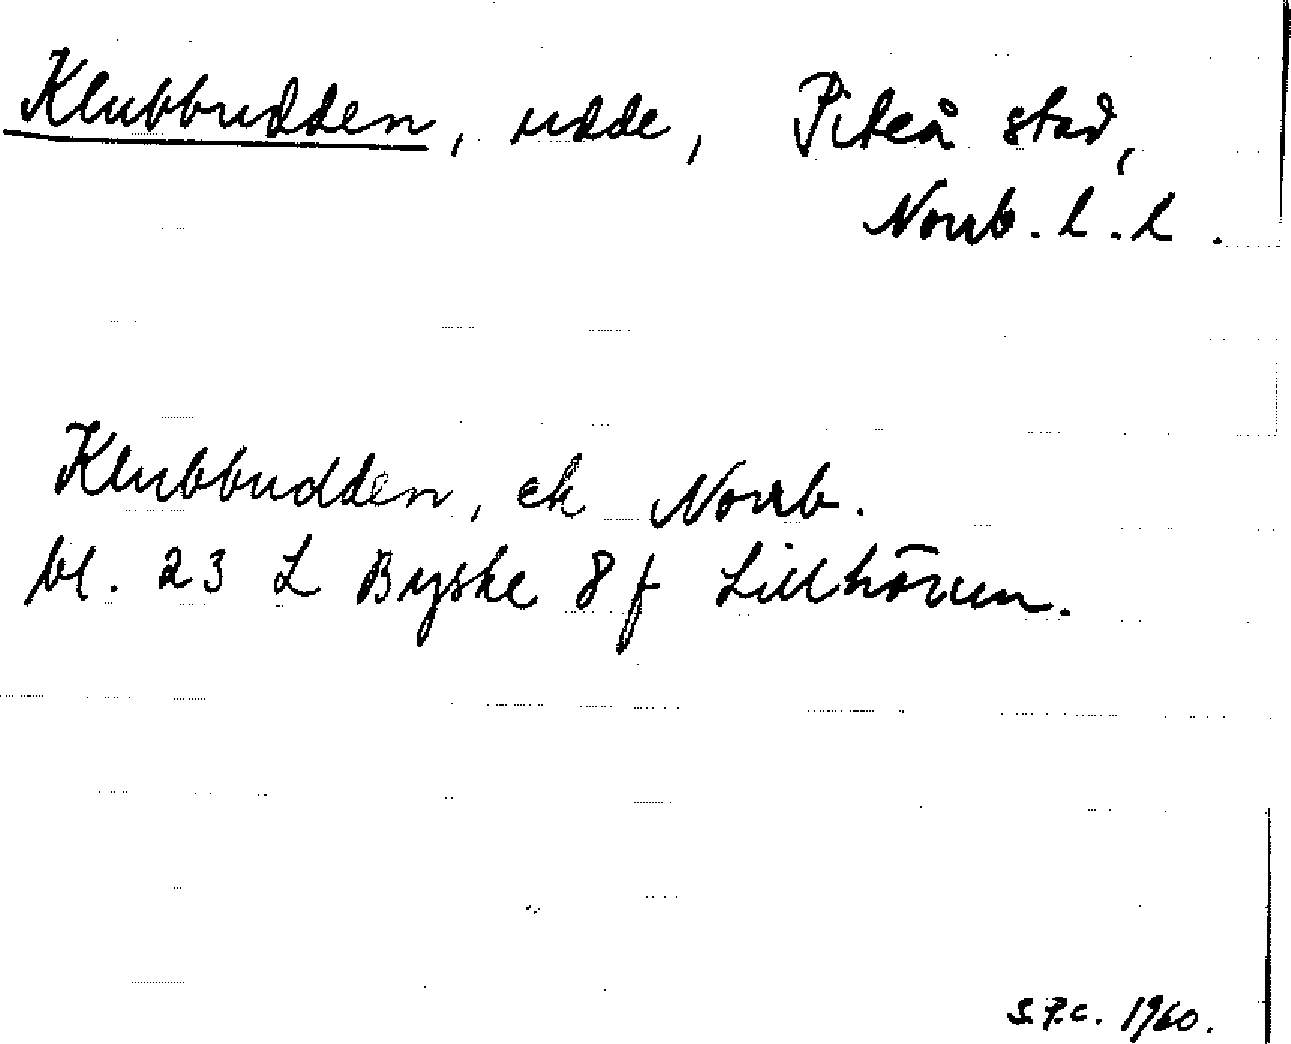 Klubbudden, udde, Piteå stad,
Norrb. l. l.
Klubbudden, ek Norrb.
bl. 23 L Byske 8 f Lillhåran.
S.P.C. 1960.